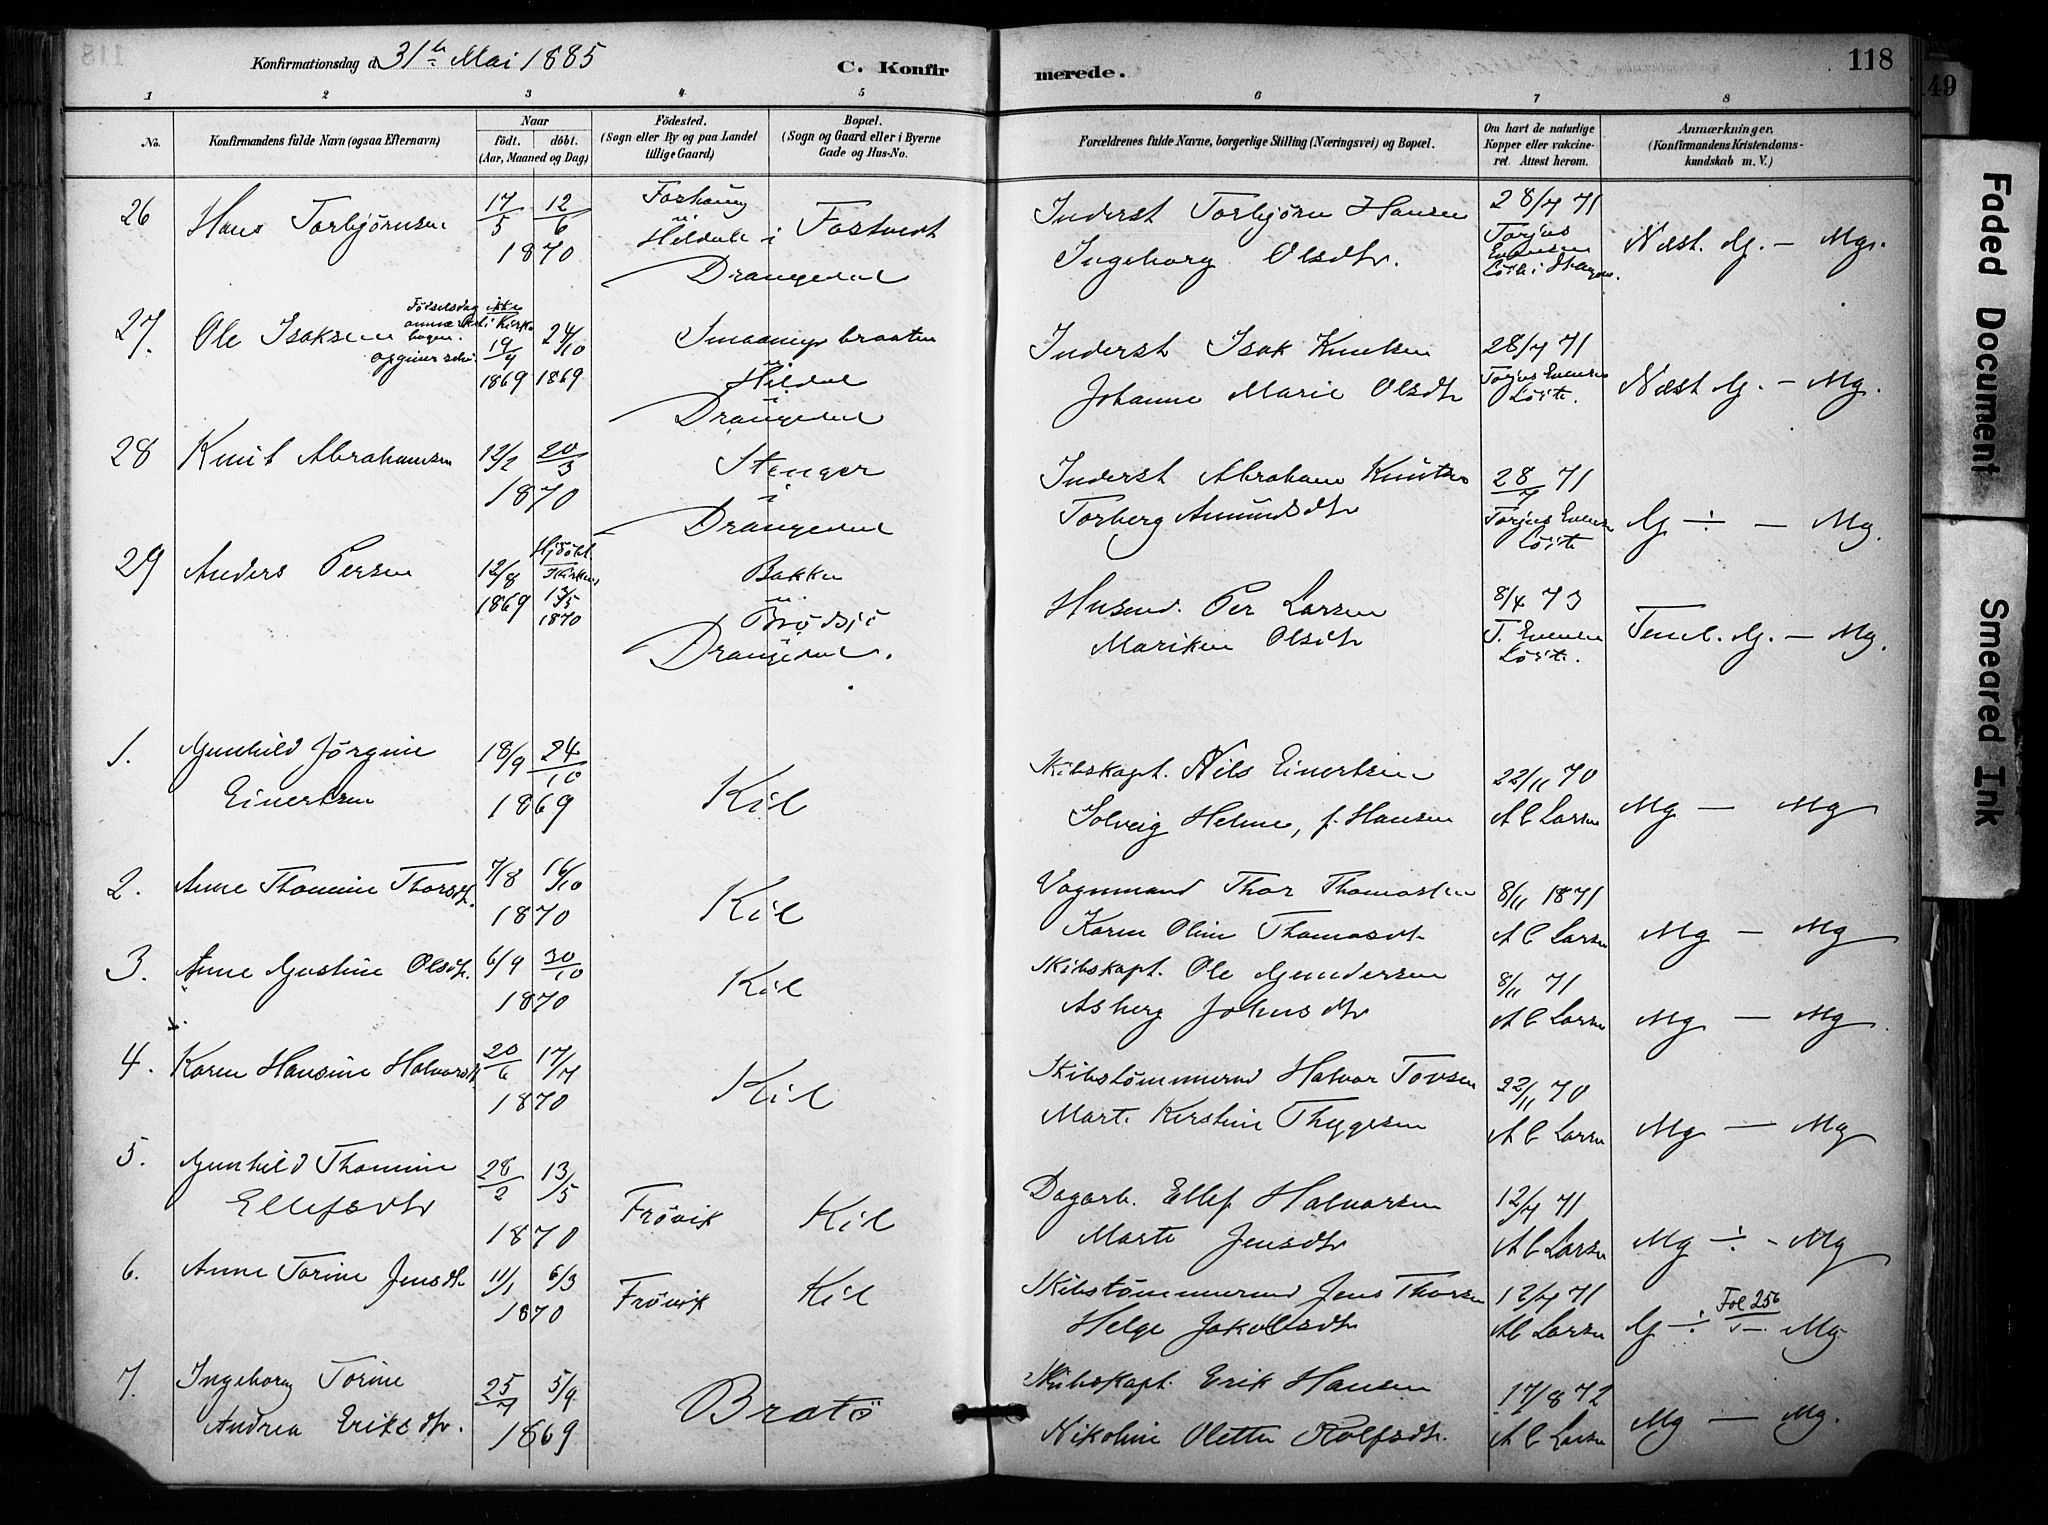 Konfirmationsdag d. 31te Mai 1885
C. Konfirmerede.
118
1 2 3 4 5 6 7 8
No.
Konfirmandens fulde Navn (ogsaa Efternavn)
Naar
født. døbt.
(Aar, Maaned og Dag)
Fødested.
(Sogn eller By og paa Landet
tillige Gaard)
Bopæl.
(Sogn og Gaard eller i Byerne
Gade og Hus-No.
Forældrenes fulde Navne, borgerlige Stilling (Næringsvei) og Bopæl.
Om havt de naturlige
Kopper eller vakcine-
ret. Attest herom.
Anmærkninger.
(Konfirmandens Kristendoms-
kundskab m. V.)
26 Hans Torbjørnsen 17/5 12/6 1870
Hildal i Drangedal
Inderst Torbjørn Hansen
Ingeborg Olsdtr.
28/7 71
Torjus Evensen
Næst. G. — Mg.
27. Ole Isaksen
Fødselsdag ikke
19/9 1869 24/10 1869
Hildal
Drangedal
Inderst Isak Knutsen
Johanne Marie Olsdtr
28/7 71
Torjus Evensen
Næst G. — Mg.
28 Knut Abrahamsen 12/2 20/3 1870
Stenger
i
Drangedal
Inderst Abraham Knutsen
Torberg Amundsdtr
28/7 71
Torjus Evensen
G ÷ — Mg.
29 Anders Persen 12/8 1869
Hjdøbt
13/5 1870
Bakken
Drangedal.
Husmd. Per Larsen
Mariken Olsdtr
8/4 73
T. Evensen
Teml. G. — Mg.
1. Gunhild Jørgine
Einertsen
18/9 24/10 1869
Kil
Skibskapt. Nils Einertsen
Solveig Helene, f. Hansen
22/11 70
A C Larsen
Mg — Mg
2. Anne Thomine Thorsdt. 7/8 16/10 1870
Kil
Vognmand Thor Thomassen
Karen Oline Thomasdt.
8/11 1871
A C Larsen
Mg — Mg
3. Anne Gustine Olsdt. 6/9 30/10 1870
Kil
Skibskapt. Ole Gundersen
Asberg Johnsdtr
8/11 71
A C Larsen
Mg — Mg
4. Karen Hansine Halvorsdt. 20/6 17/7 1870
Kil
Skibstømmermd Halvor Tovsen
Mart. Kirstine Thygesen
22/11 70
A C Larsen
Mg — Mg
5. Gunhild Thomine
Ellefsdtr
28/2 13/5 1870
Frøvik Kil
Dagarb. Ellef Halvorsen
Marte Jensdtr
12/7 71
A C Larsen
Mg ÷ - Mg
6. Anne Torine Jensdt. 11/1 6/3 1870
Frøvik Kil
Skibstømmermd Jens Thorsen
Helge Jakobsdtr
12/7 71
A C Larsen
G ÷ Fol 256 — Mg
7. Ingeborg Torine
Andrea Eriksdtr.
25/7 5/9 1869
Bratø
Skibskapt. Erik Hansen
Nikoline Olette Rolfsdt.
17/8 72
A C Larsen
Mg — Mg.
49
Faded Document
Smeared Ink